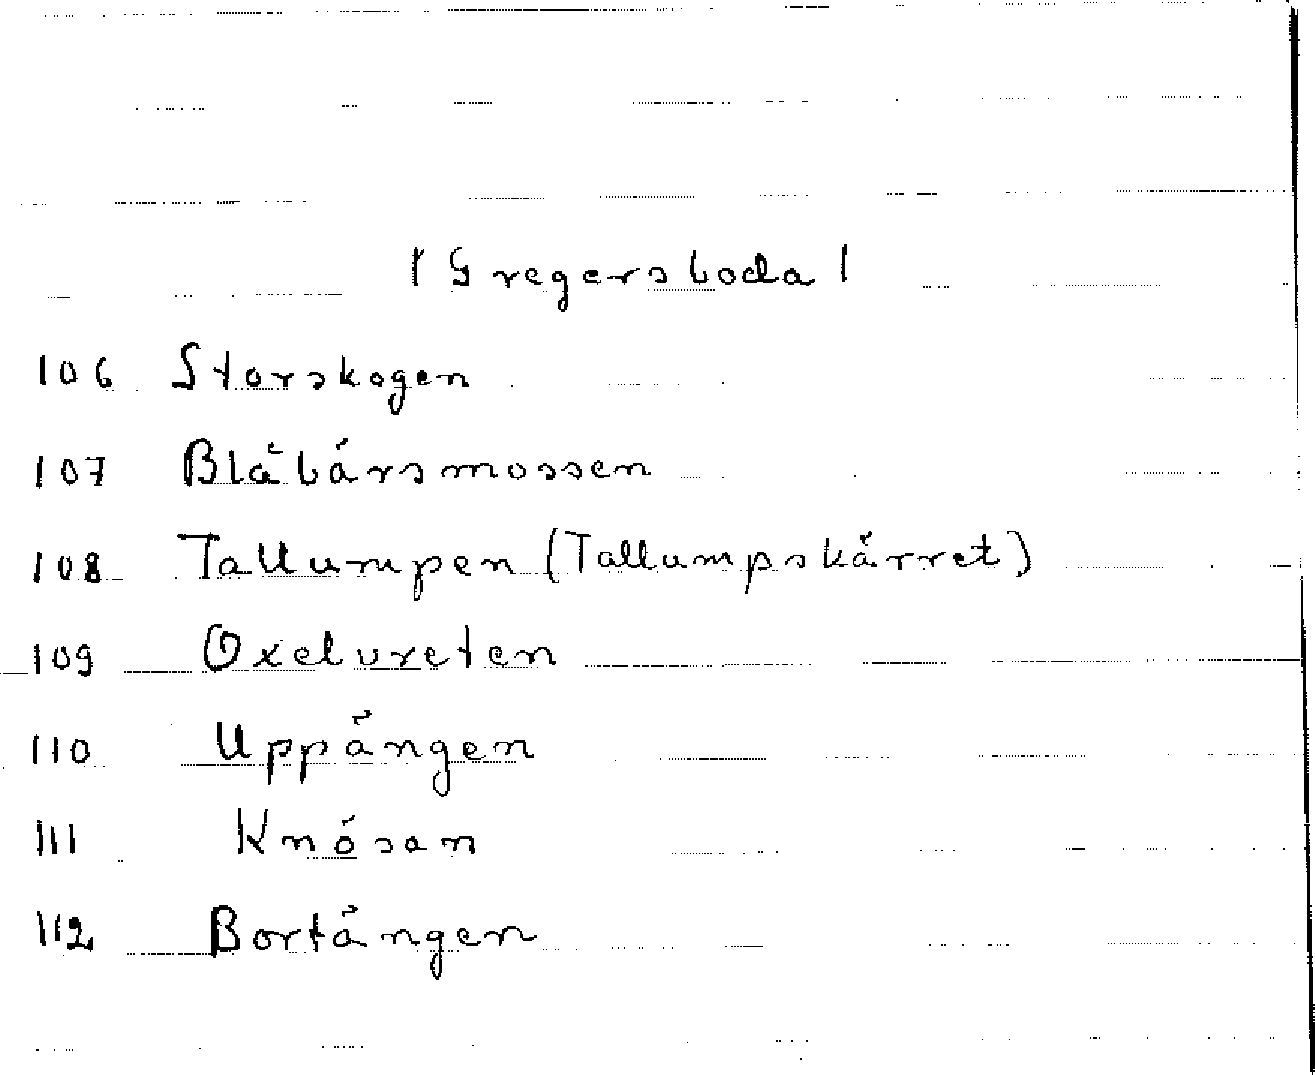 | Gregersboda |
106 Storskogen
107 Blåbärsmossen
108 Tallumpen (Tallumpskärret)
109 Oxelvreten
110 Uppängen
111 Knösan
112 Bortängen